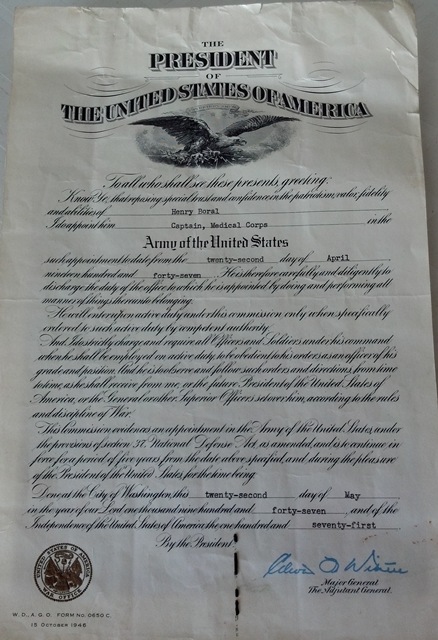 THE
PRESIDENT
OF
THE UNITED STATES OF AMERICA
To all who shall see these presents, greeting:
Know Ye, that reposing special trust and confidence in the patriotism, valor, fidelity
and abilities of Henry Boral
I do appoint him Captain, Medical Corps in the
Army of the United States
such appointment to date from the twenty-second day of April
nineteen hundred and forty-seven. He is therefore carefully and diligently to
discharge the duty of the office to which he is appointed by doing and performing all
manner of things thereunto belonging.
He will enter upon active duty under this commission only when specifically
ordered to such active duty by competent authority.
And I do strictly charge and require all Officers and Soldiers under his command
when he shall be employed on active duty to be obedient to his orders as an officer of his
grade and position. And he is to observe and follow such orders and directions, from time
to time, as he shall receive from me, or the future President of the United States of
America, or the General or other Superior Officers set over him, according to the rules
and discipline of War.
This Commission evidences an appointment in the Army of the United States, under
the provisions of section 37, National Defense Act, as amended, and is to continue in
force for a period of five years from the date above specified, and during the pleasure
of the President of the United States, for the time being.
Done at the City of Washington, this twenty-second day of May
in the year of our Lord one thousand nine hundred and forty-seven, and of the
Independence of the United States of America the one hundred and seventy-first
By the President:
Major General
The Adjutant General.
UNITED STATES OF AMERICA
WAR OFFICE
W. D., A. G. O. FORM No. 0650 C.
15 OCTOBER 1946